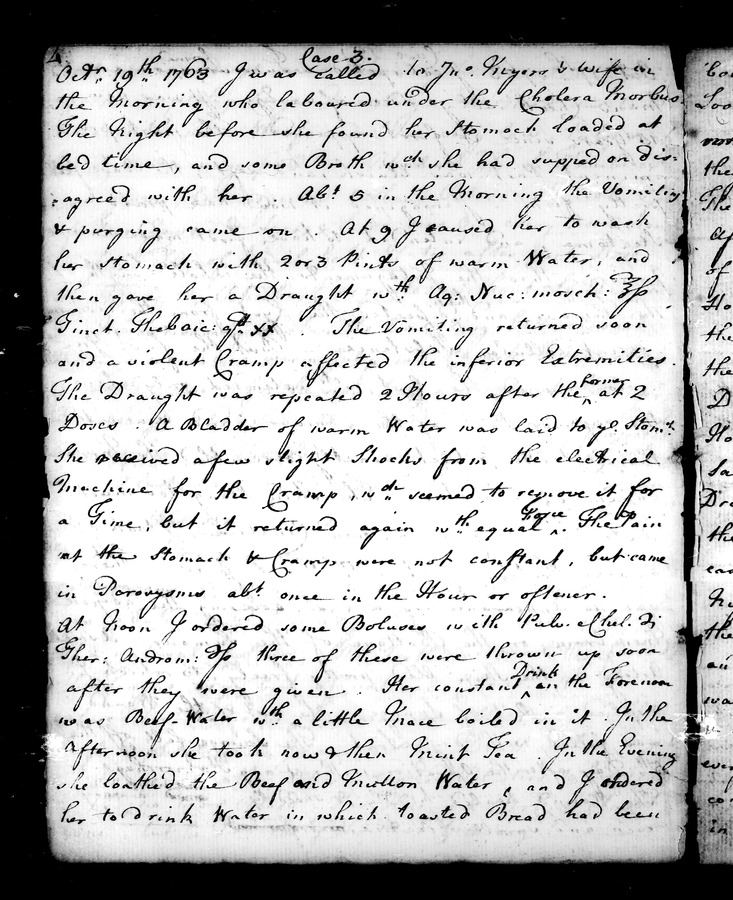 Case 3.
Octr. 19th 1763 I was called to Jno. Myers's Wife in
the Morning who laboured under the Cholera Morbus
The Night before she found her Stomach loaded at
bed time, and some Broth wch she had supped on dis-
agreed with her. Abt 5 in the Morning the Vomiting
& purging came on. At 9 I caused her to wash
her Stomach with 2 or 3 Pints of warm Water, and
then gave her a Draught wth Aq: Nuc: mosch: ℥ſs
Tinct. Thebaic: gtt xx. The Vomiting returned soon
and a violent Cramp affected the inferior Extremities.
The Draught was repeated 2 Hours after the former at 2
Doses. A Bladder of warm Water was laid to ye. Stomh.
She received a few slight Shocks from the electrical
Machine for the Cramp, wch seemed to remove it for
a Time, but it returned again wth equal Force. The Pain
at the Stomach & Cramp were not constant, but came
in Paroxysms abt once in the Hour or oftener.
At Noon I ordered some Boluses with Pulv. e Chel. ℈i
Ther: Androm: ℈ſs three of these were thrown up soon
after they were given. Her constant Drink in the Forenoon
was Beef Water wth a little Mace boiled in it. In the
Afternoon she took now & then Mint Tea. In the Evening
she loathed the Beef and Mutton Water, and I ordered
her to drink Water in which toasted Bread had been